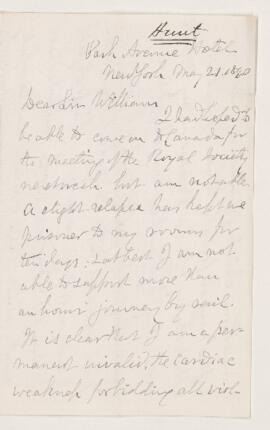 Hunt
Park Avenue Hotel
New York May 21. 1890
Dear Sir William
I had hoped to
be able to come on to Canada for
the meeting of the Royal Society
next week but am not able.
A slight relapse has kept me
prisoner to my rooms for
ten days; at best I am not
able to support more than
an hour journey by rail.
It is clear that I am a per-
manent invalid, the cardiac
weakness forbidding all viol-